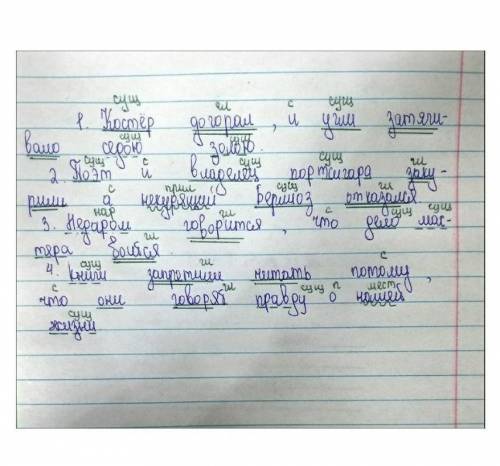 сущ гл с сущ
1. Костёр догорал, и угли затяги-
сущ сущ
вало седою золою.
сущ с сущ сущ гл
2. Поэт и владелец портсигара заку-
с прил сущ гл
рили а некурящий Берлиоз отказался
нар гл с сущ сущ
3. Недаром говорится, что дело мас-
гл
тера боится.
сущ гл с
4. Книги запретили читать потому,
с гл сущ п мест
что они говорят правду о нашей
сущ
жизни